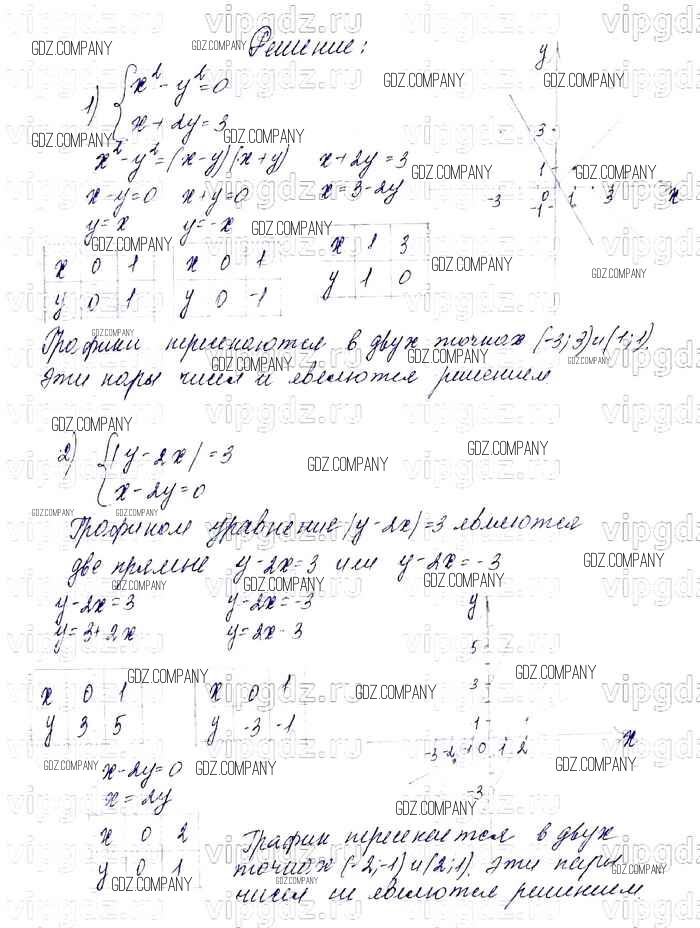 Решение:
1) { x² - y² = 0
x + 2y = 3
x² - y² = (x-y)(x+y) x + 2y = 3
x - y = 0 x + y = 0 x = 3 - 2y
y = x y = -x
x 0 1 x 0 1 x 1 3
y 0 1 y 0 -1 y 1 0
y
3
1
-3 0 1 3 x
-1
Графики пересекаются в двух точках (-3; 3) и (1; 1).
Эти пары чисел и являются решением
2) { |y - 2x| = 3
x - 2y = 0
Графиком уравнение |y - 2x| = 3 являются
две прямые y - 2x = 3 или y - 2x = -3
y - 2x = 3 y - 2x = -3
y = 3 + 2x y = 2x - 3
x 0 1 x 0 1
y 3 5 y -3 -1
y
5
3
1
-3 -2 -1 0 1 2 x
-3
x - 2y = 0
x = 2y
x 0 2
y 0 1
График пересекается в двух
точках (-2; -1) и (2; 1). Эти пары
чисел и являются решением.
GDZ.COMPANY
vipgdz.ru